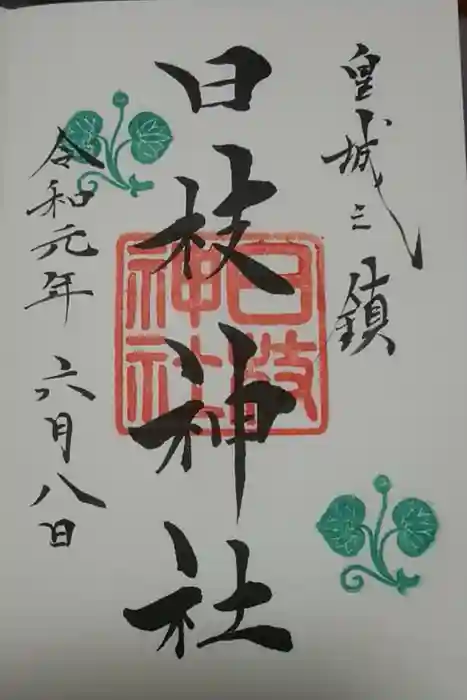 皇城之鎮
日枝神社
日枝神社
令和元年 六月八日